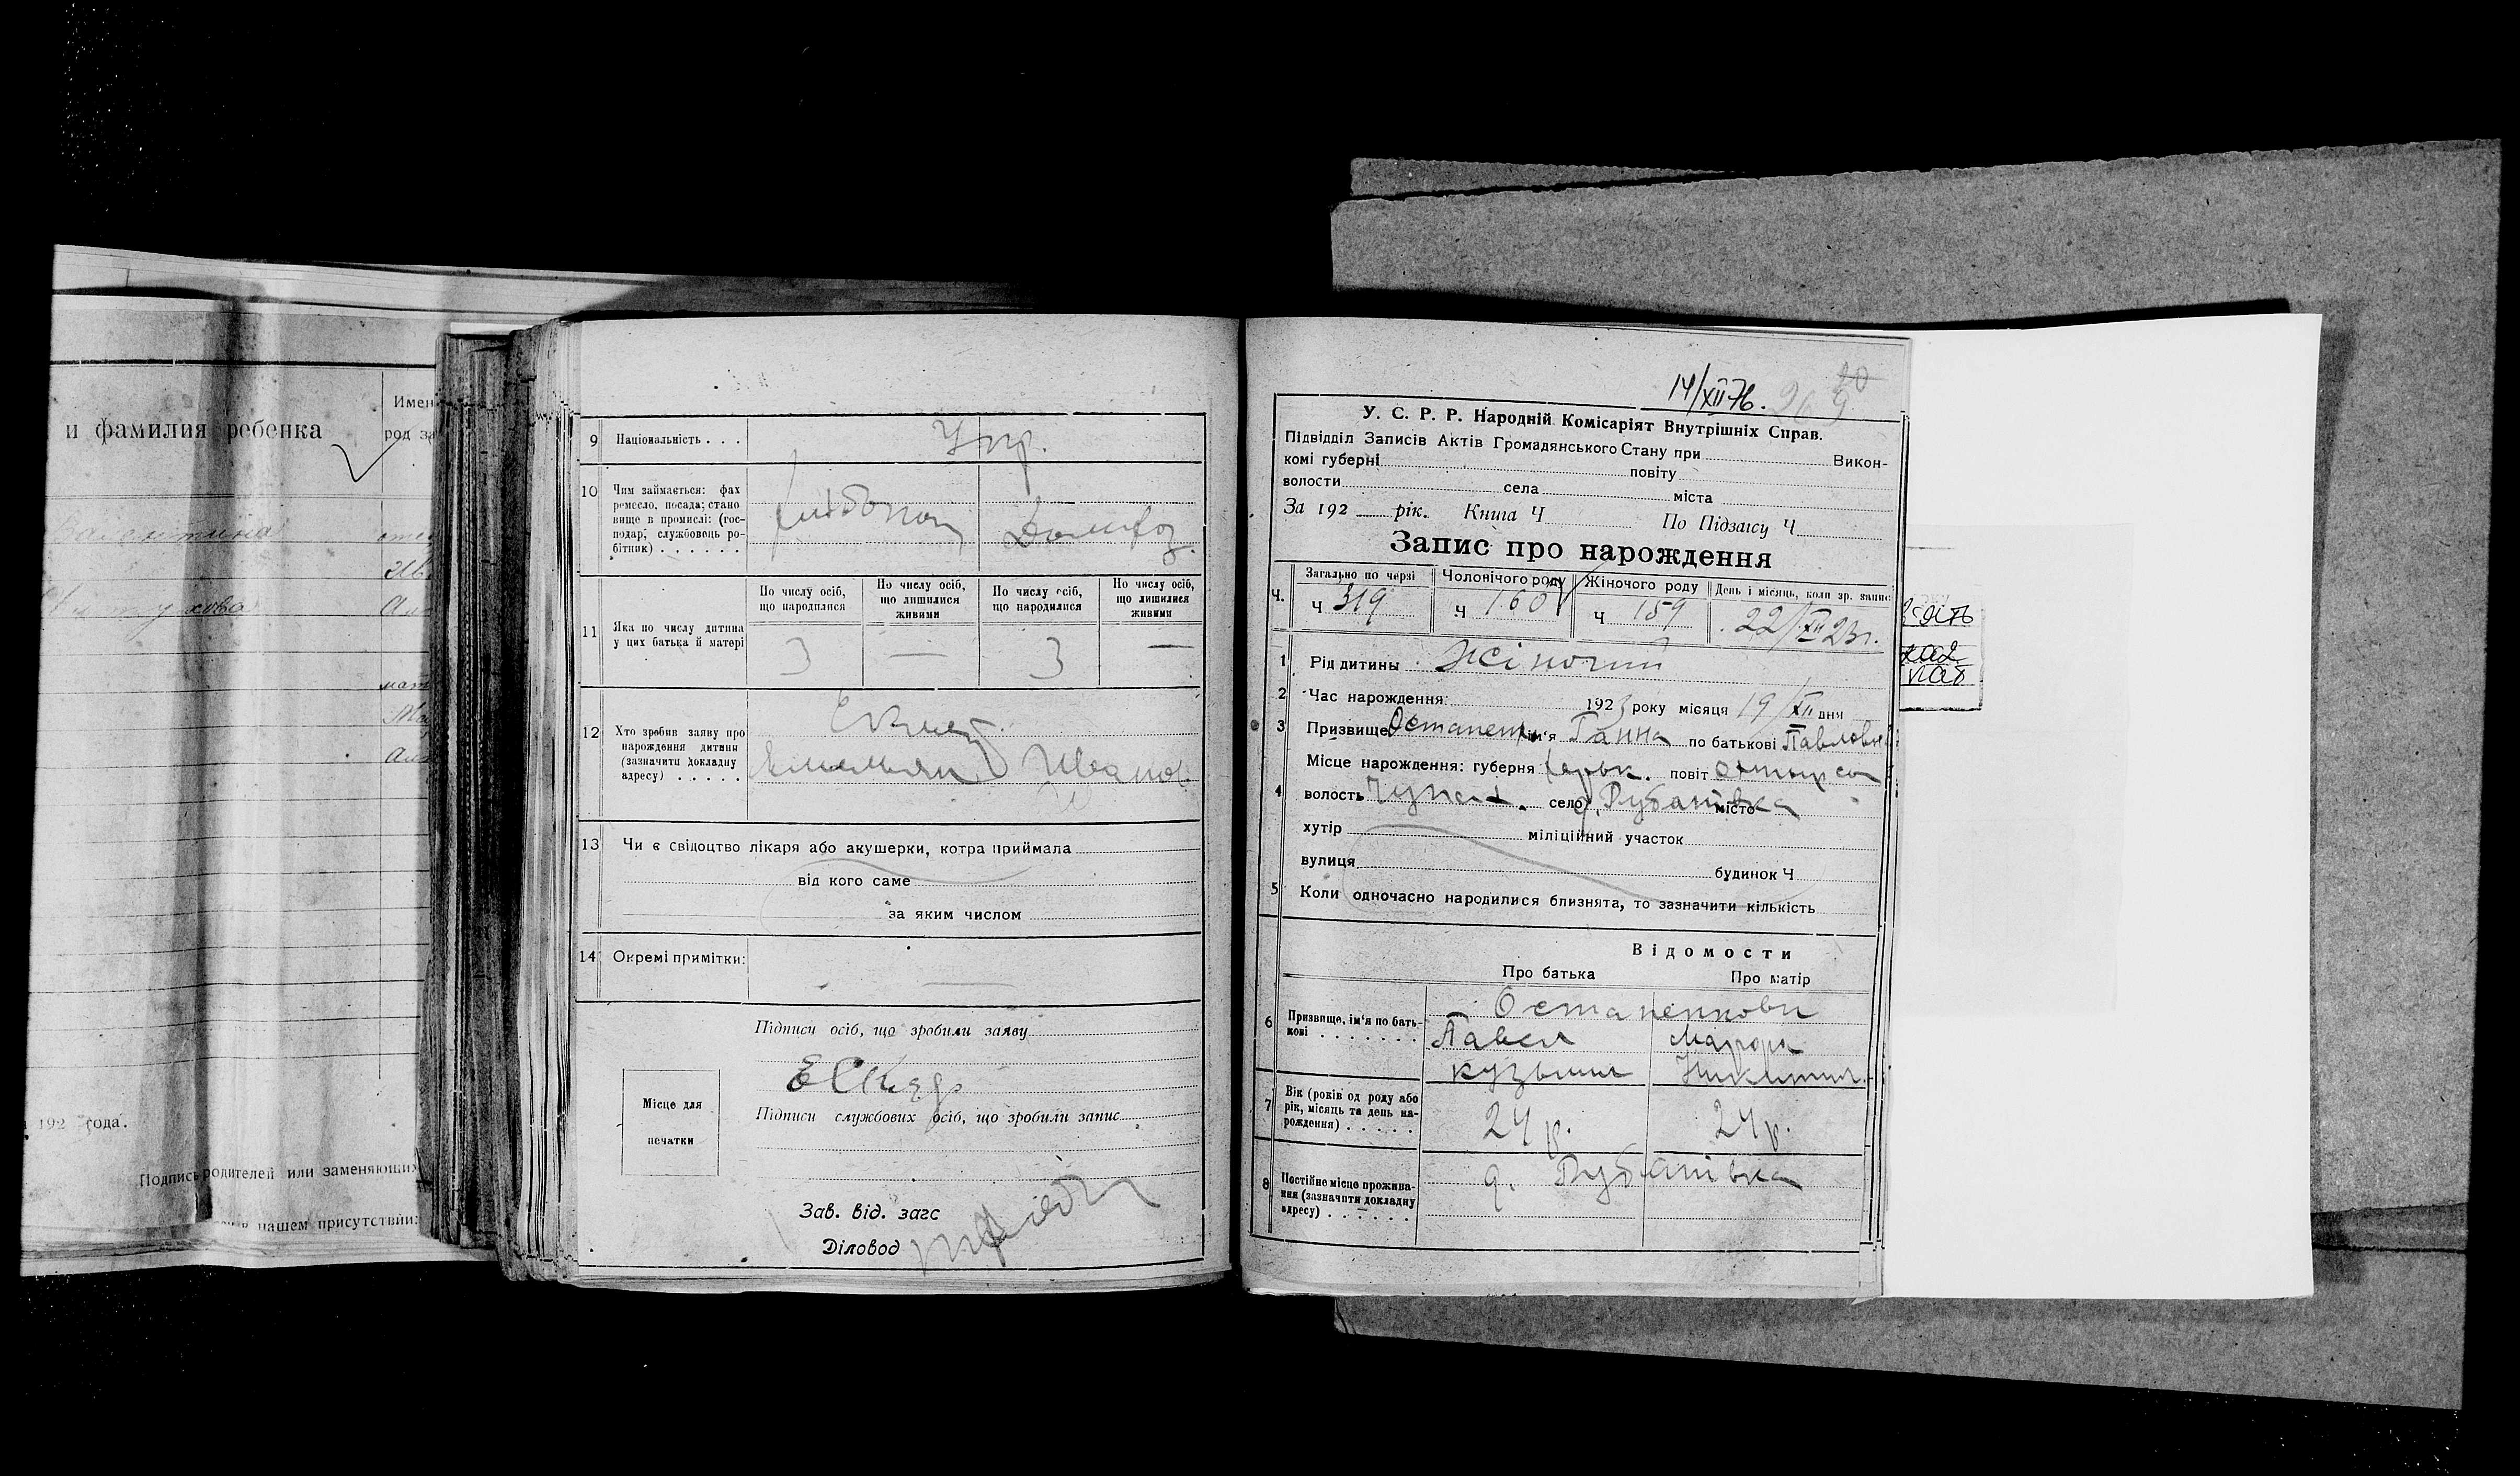 и фамилия ребенка
Имен
род за
192 года.
Подпись родителей или заменяющих
в нашем присутствии:
9 Національність . . . Укр.
10 Чим займається: фах
ремесло, посада; стано
вище в промислі: (гос-
подар, службовець ро-
бітник) . . . . . .
хлібопаш Домохоз.
По числу осіб, що народилися
По числу осіб, що лишилися живими
По числу осіб, що народилися
По числу осіб, що лишилися живими
11 Яка по числу дитина
у цих батька й матері
3 — 3 —
12 Хто зробив заяву про
нарождення дитини
(зазначити докладну
адресу) . . . . .
Емельян Иванов
13 Чи є свідоцтво лікаря або акушерки, котра приймала
від кого саме
за яким числом
14 Окремі примітки: —
Підписи осіб, що зробили заяву
Підписи службових осіб, що зробили запис
Місце для
печатки
Зав. від. загс
Діловод
14/XII 76.
У. С. Р. Р. Народній Комісаріят Внутрішніх Справ.
Підвідділ Записів Актів Громадянського Стану при Викон-
комі губерні повіту
волости села міста
За 192 рік. Книга Ч По Підзагсу Ч
Запис про нарождення
Ч. Загально по черзі Чоловічого роду Жіночого роду День і місяць, коли зр. запис
Ч 319 Ч 160 Ч 159 22/XII 23 г.
1 Рід дитины Жіночий
2 Час нарождення: 1923 року місяця 19/XII дня
3 Призвище Остапенк ім'я Ганна по батькові Павловна
4 Місце нарождення: губерня Харьк. повіт Охтырск
волость Чупах. село д. Рубанівка місто
хутір міліційний участок
вулиця будинок Ч
5 Коли одночасно народилися близнята, то зазначити кількість
Відомости
Про батька Про матір
6 Призвище, ім'я по бать-
кові . . . . . . .
Остапенкови
Павел Марфа
Кузьмич Никитич.
7 Вік (років од роду або
рік, місяць та день на-
рождення) . . . . .
24 р. 24 р.
8 Постійне місце прожива-
ння (зазначити докладну
адресу) . . . . . .
д. Рубанівка